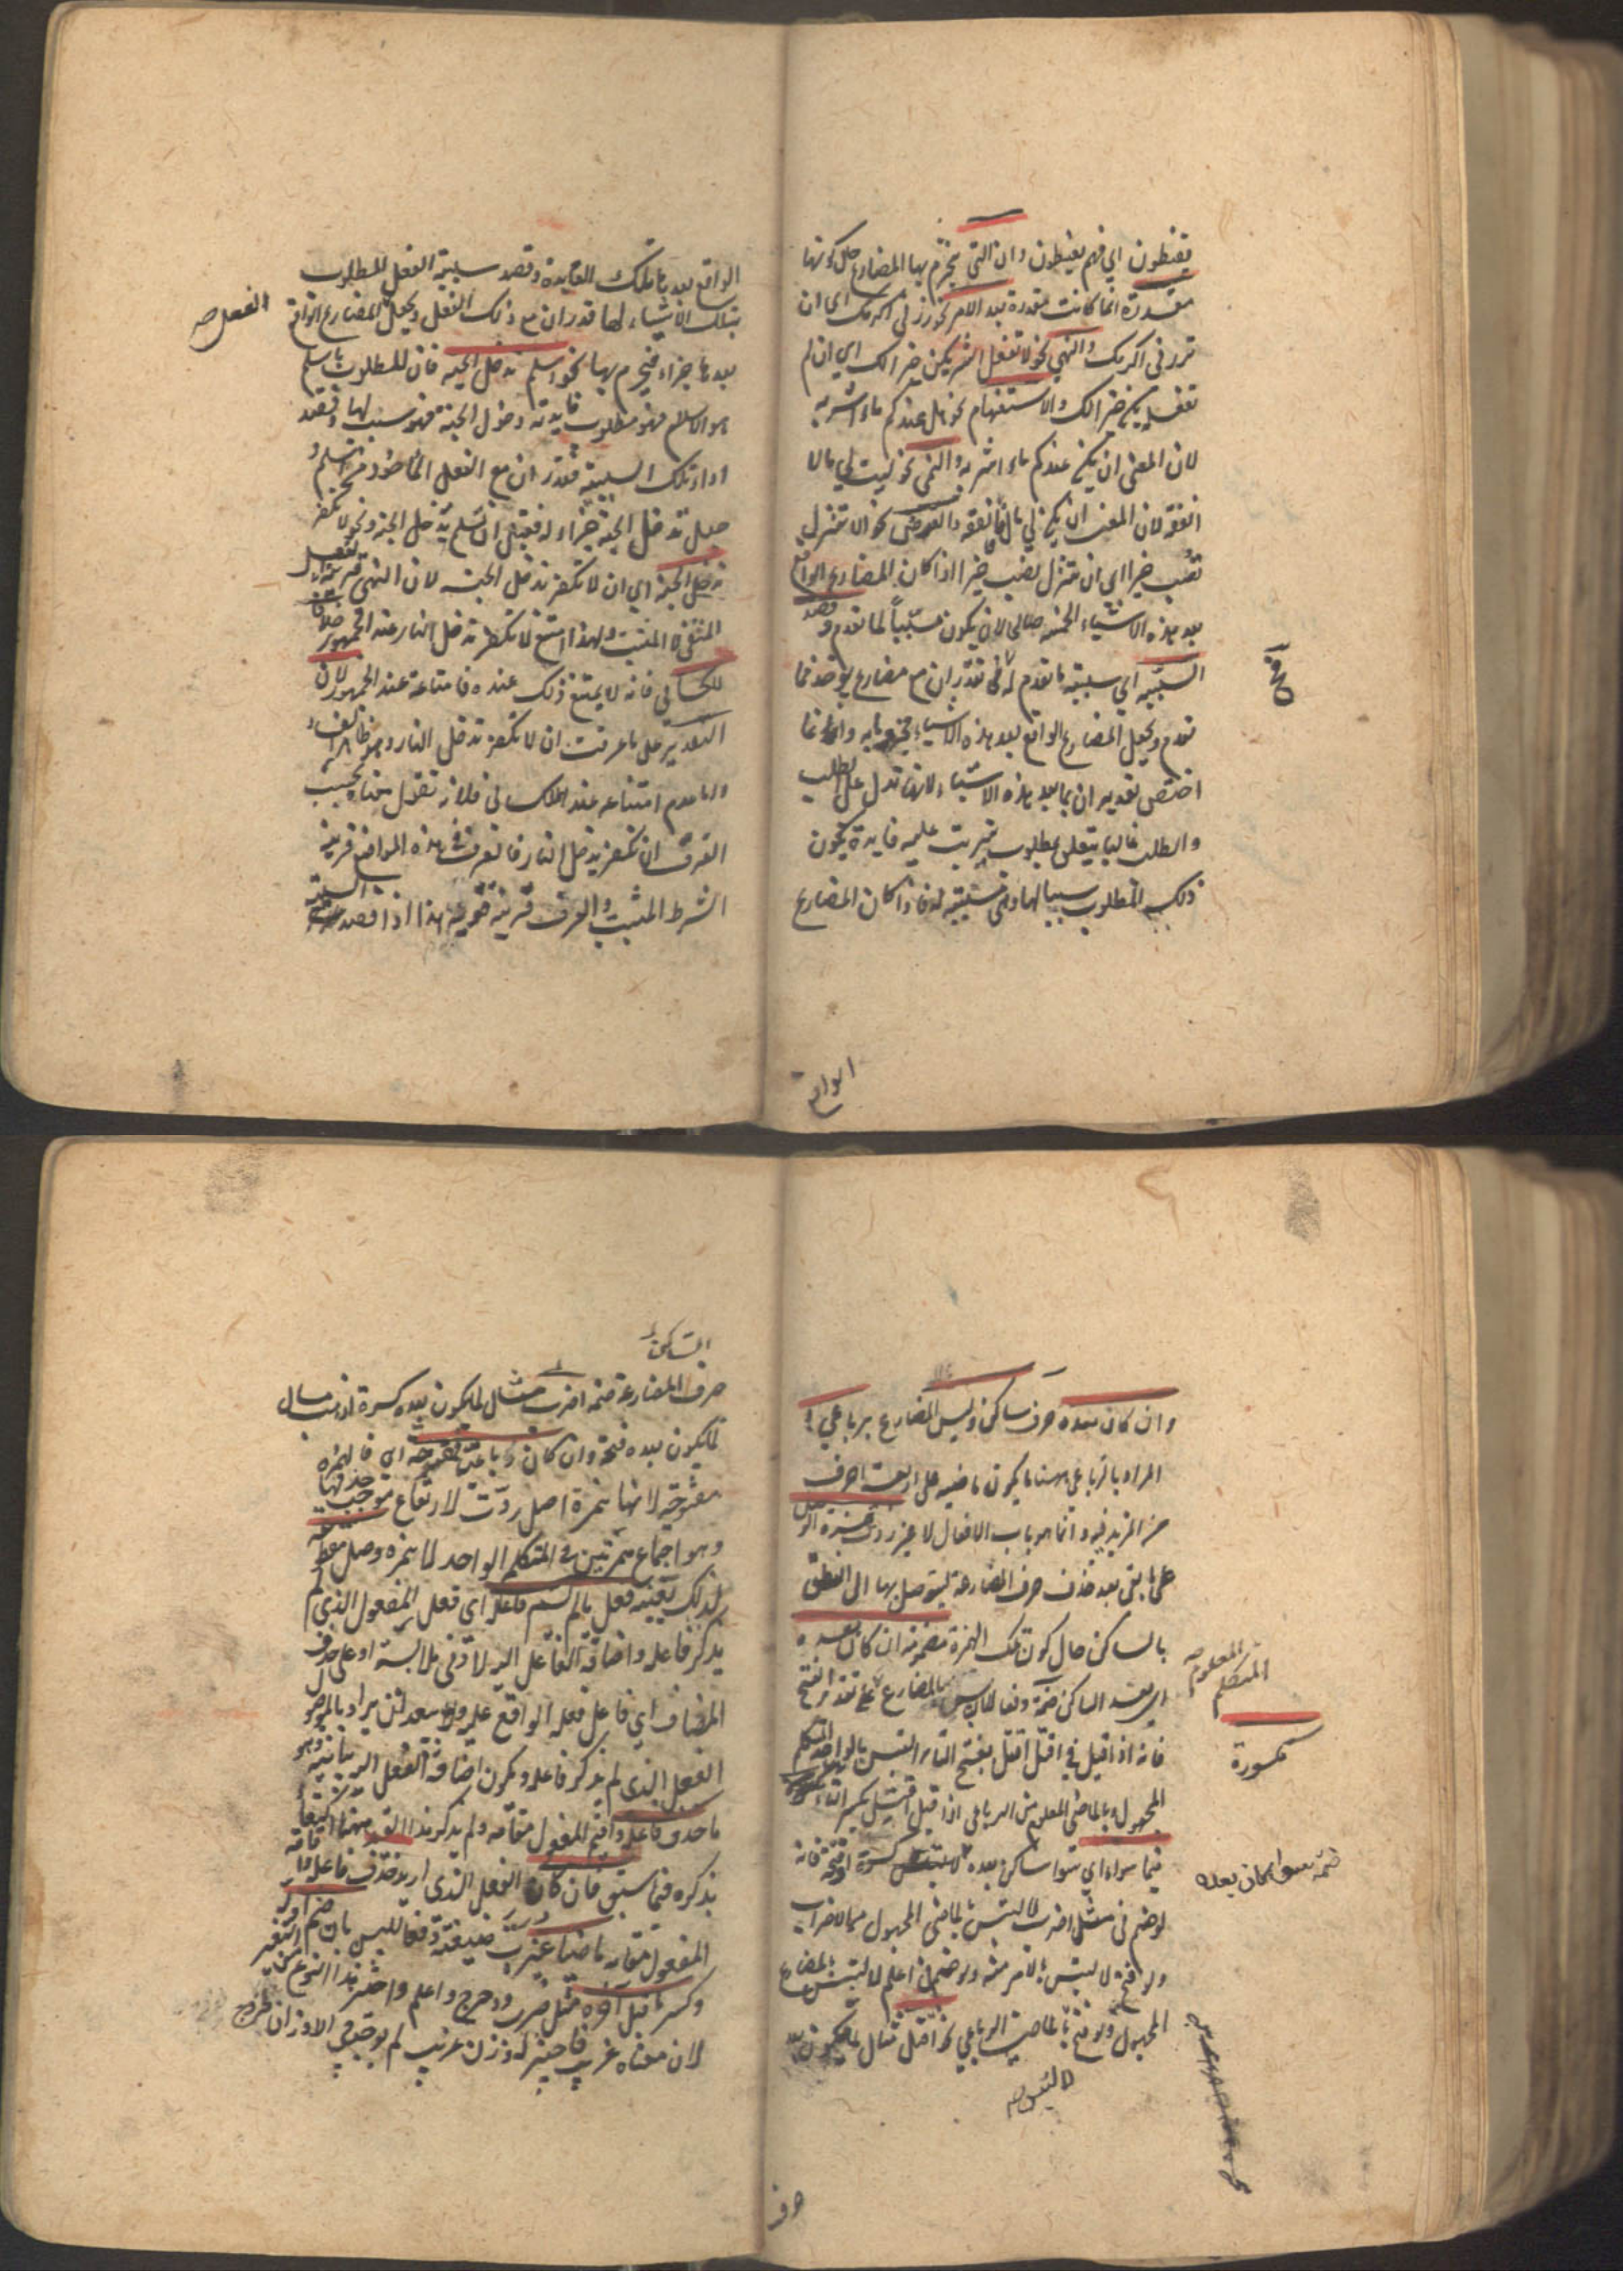 يقنطون اي فهم يقنطون وان التي ينجزم بها المضارع حال كونها
مقدرة انما كانت مقدرة بعد الامر نحو زرني اكرمك اي ان
تزرني اكرمك والنهي نحو لا تفعل الشر يكن خيرا لك اي ان لم
تفعله يكن خيرا لك والاستفهام نحو هل عندكم ماء اشربه
لان المعنى ان يكن عندكم ماء اشربه والتمني نحو ليت لي مالا
انفقه لان المعنى ان يكن لي مال انفقه والعرض نحو الا تنزل
تصب خيرا اي ان تنزل تصب خيرا اذا كان المضارع الواقع
بعد هذه الاشياء الخمسة صالحا لان يكون مسببا لما تقدم وقصد
السببية اي سببية ما تقدم له تقدر ان مع مضارع يؤخذ مما
تقدم ويجعل المضارع الواقع بعد هذه الاشياء مجزوما به وانما
اختص تقدير ان بما بعد هذه الاشياء لانها تدل على الطلب
والطلب غالبا يتعلق بمطلوب يترتب عليه فايدة يكون
ذلك المطلوب سببا لها وهي مسببة له فاذا كان المضارع
الواقع
الواقع بعدها تلك الفايدة وقصد سببية الفعل المطلوب
بتلك الاشياء لها قدر ان مع ذلك الفعل ويجعل المضارع الواقع
الفعل صح
بعدها جزاء فيجزم بها نحو اسلم تدخل الجنة فان المطلوب باسلم
هو الاسلام فهو مطلوب فايدته دخول الجنة فهو سبب لها وقصد
اداء تلك السببية فقدر ان مع الفعل الماخوذ من اسلم و
جعل تدخل الجنة جزاء له فقيل ان تسلم تدخل الجنة ونحو لا تكفر
تدخل الجنة اي ان لا تكفر تدخل الجنة لان النهي قرينة الفعل
المنفي لا المثبت ولهذا امتنع لا تكفر تدخل النار عند الجمهور خلافا
للكسائي فانه لا يمتنع ذلك عنده فامتناعه عند الجمهور لان
التقدير على ما عرفت ان لا تكفر تدخل النار وهو ظاهر الفساد
واما عدم امتناعه عند الكسائي فلانه تقول معناه بحسب
العرف ان تكفر تدخل النار فالعرف في هذه المواضع قرينة
الشرط المثبت والعرف قرينة قوية هذا اذا قصد السببية
وان كان بعده حرف ساكن وليس المضارع برباعي
المراد بالرباعي ههنا ما يكون ماضيه على اربعة احرف
من المزيد فيه وانما هو باب الافعال لا غير زدت همزة الوصل
على ما بقي بعد حذف حرف المضارعة ليتوصل بها الى النطق
بالساكن حال كون تلك الهمزة مضمومة ان كان بعده
اي بعد الساكن ضمة دفعا للالتباس بالمضارع على تقدير الفتح
المعلوم
المتكلم
فانه اذا قيل في اقتل اقتل بفتح التاء التبس بالواحد المتكلم
مكسورة
المجهول وبالماضي المعلوم من الرباعي اذا قيل اقتل بكسر التاء
فيما سواه اي سوا ساكن بعده كسرة او فتحة فانه
ضمة سوا كان بعده
لو ضم في مثل اضرب لالتبس بالماضي المجهول من الاضراب
ولو فتح لالتبس بالامر منه ولو ضم في اعلم لالتبس بالمضارع
المجهول ولو فتح بالماضي الرباعي نحو اقتل مثال لما يكون بعد
لالتبس صح
حرف
الساكن
حرف المضارعة ضمة اضرب مثال لما يكون بعده كسرة اذهب مثال
لما يكون بعده فتحة وان كان رباعيا فمفتوحة اي فالهمزة
مفتوحة لانها همزة اصل ردت لارتفاع موجب حذفها
وهو اجتماع همزتين في المتكلم الواحد لا همزة وصل مقطوعة
لذلك بعينه فعل ما لم يسم فاعله اي فعل المفعول الذي لم
يذكر فاعله واضافة الفاعل اليه لادنى ملابسة او على حذف
المضاف اي فاعل فعله الواقع عليه ولا يبعد ان يراد بالموصول
الفعل الذي لم يذكر فاعله ويكون اضافة الفعل اليه بيانية وهو
ما حذف فاعله واقيم المفعول مقامه ولم يذكر هذا القيد ههنا اكتفاء
بذكره فيما سبق فان كان الفعل الذي اريد حذف فاعله واقامة
المفعول مقامه ماضيا غيرت صيغته دفعا للبس بان ضم اوله
وكسر ما قبل آخره مثل ضرب ودحرج واعلم واختير هذا النوع من التغيير
لان معناه غريب فاختير له وزن غريب لم يوجد في الاوزان